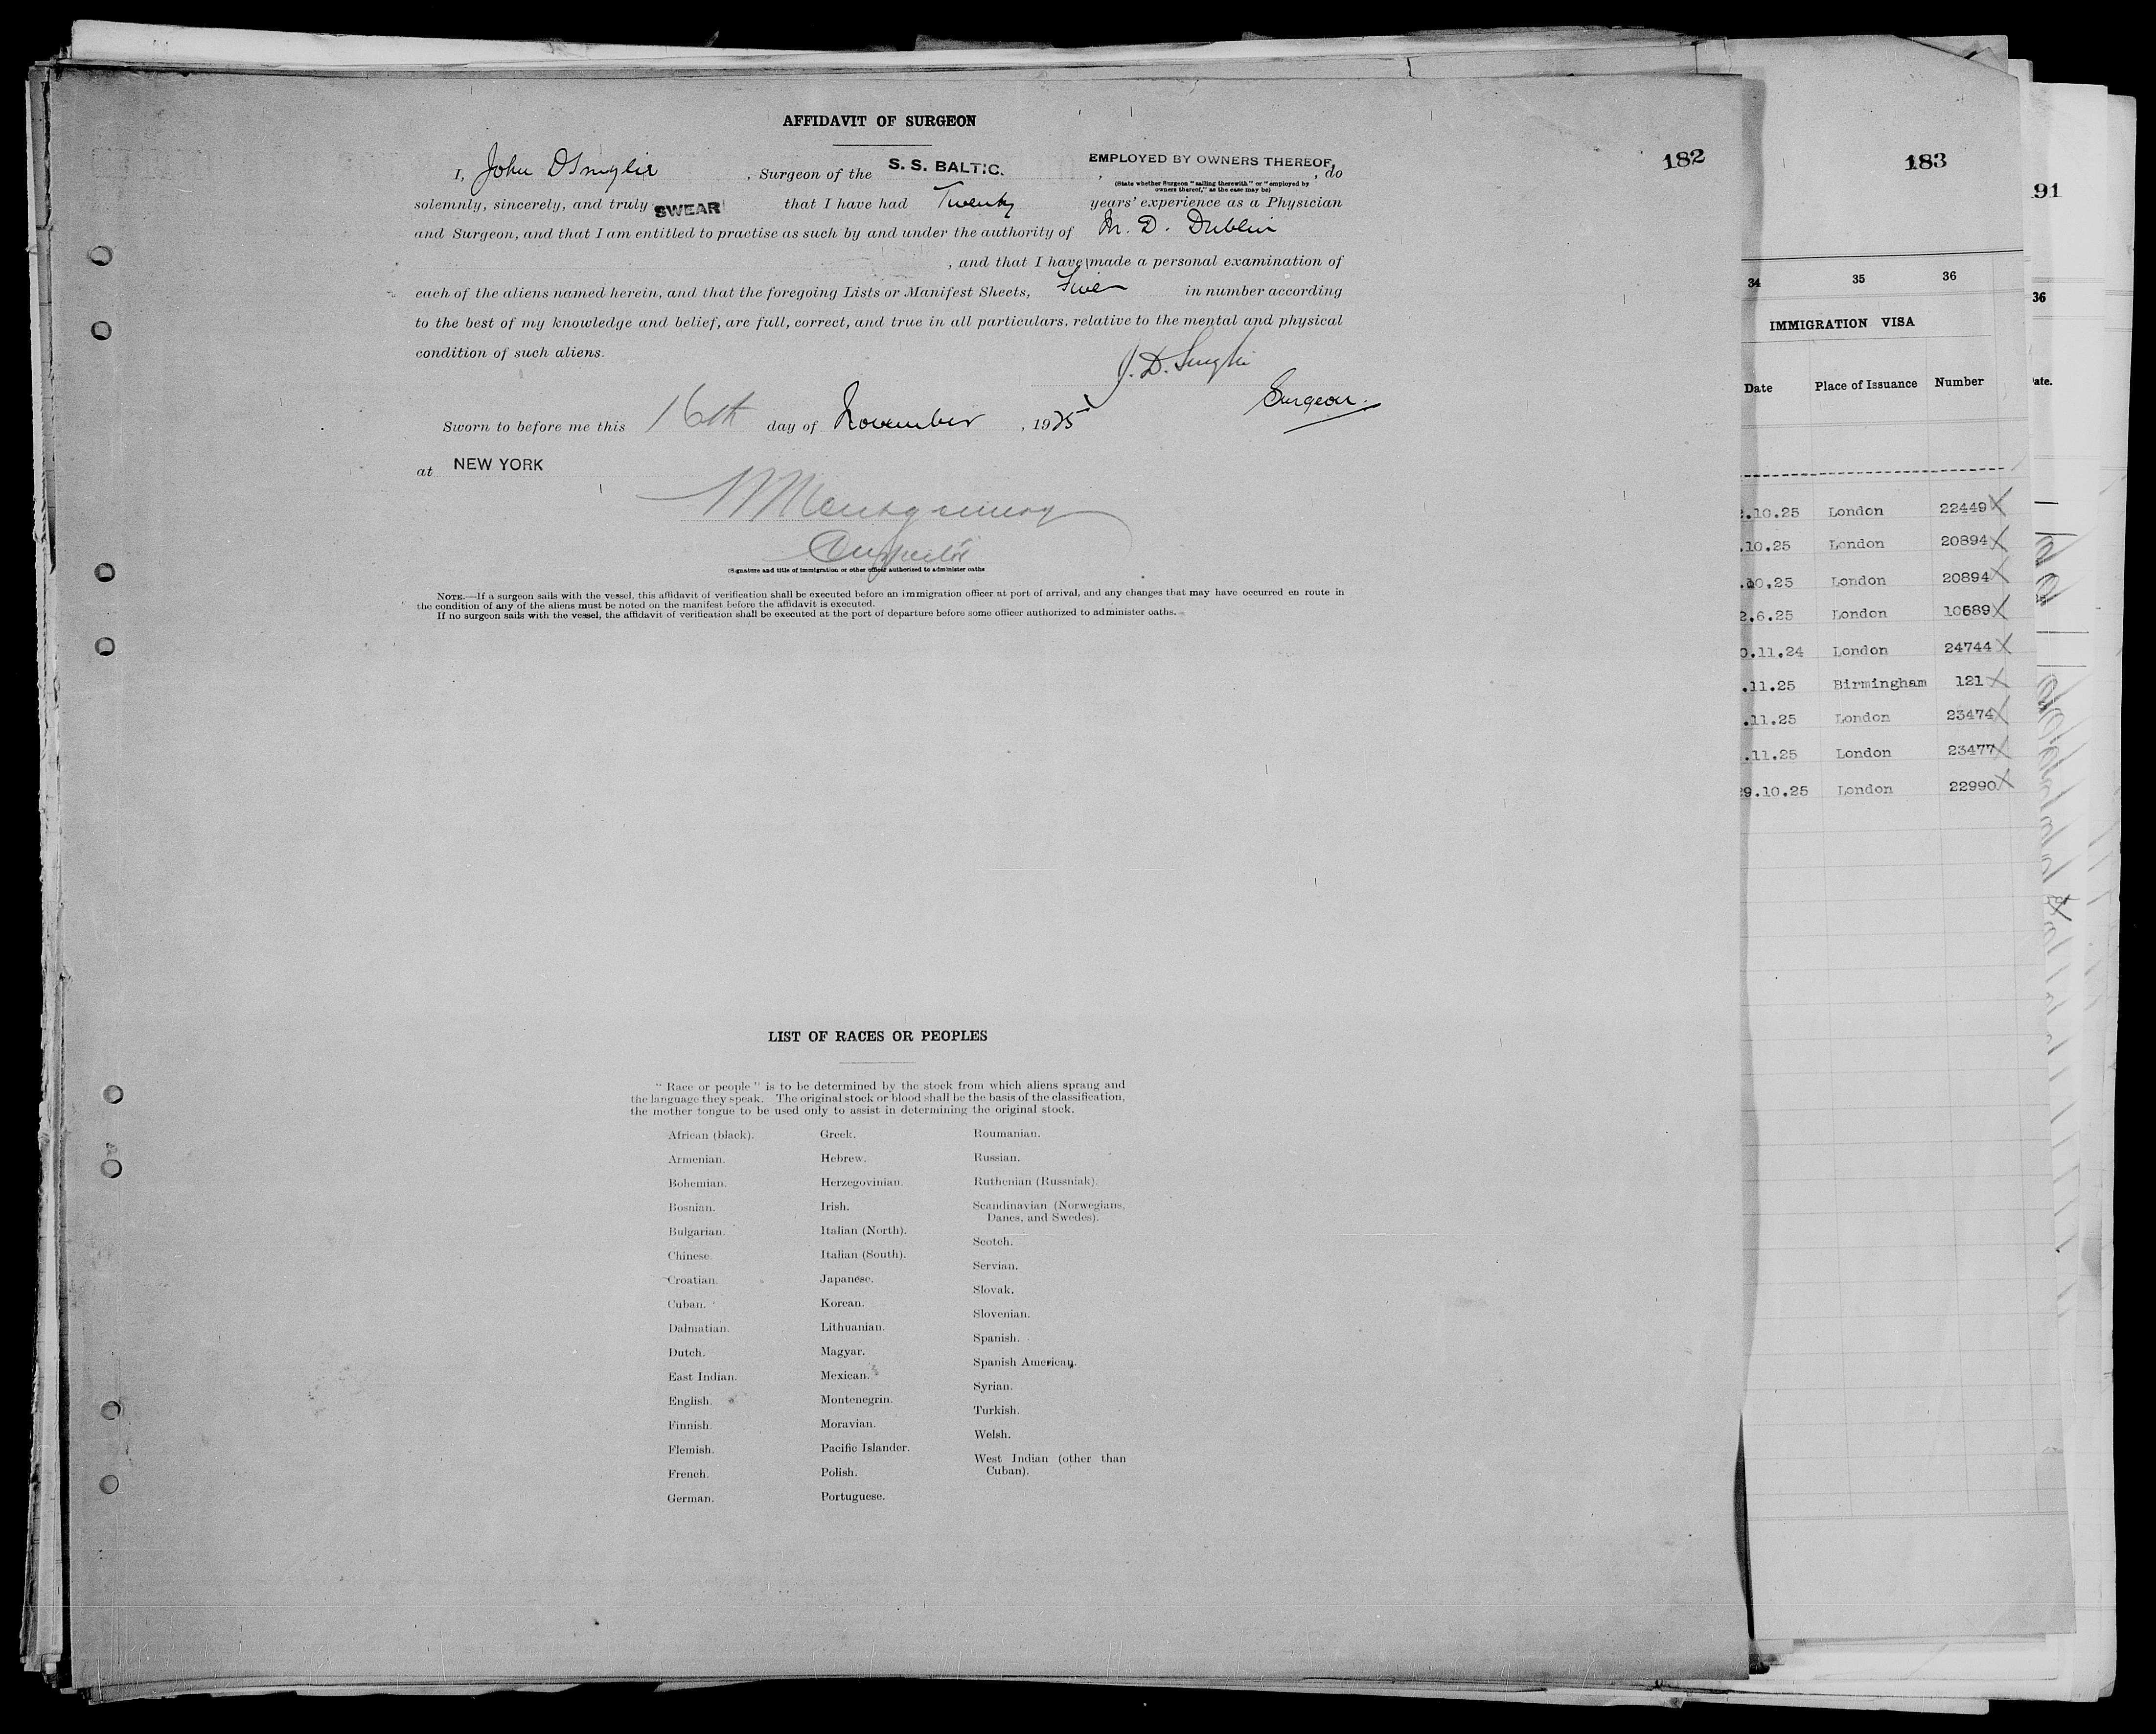 AFFIDAVIT OF SURGEON
182
I, John D , Surgeon of the S. S. BALTIC. , EMPLOYED BY OWNERS THEREOF, , do
(State whether Surgeon "sailing therewith" or "employed by
owners thereof," as the case may be)
solemnly, sincerely, and truly SWEAR that I have had Twenty years' experience as a Physician
and Surgeon, and that I am entitled to practise as such by and under the authority of M. D. Dublin
, and that I have made a personal examination of
each of the aliens named herein, and that the foregoing Lists or Manifest Sheets, Five in number according
to the best of my knowledge and belief, are full, correct, and true in all particulars, relative to the mental and physical
condition of such aliens.
J. D.
Surgeon.
Sworn to before me this 16th day of November , 1925
at NEW YORK
Montgomery
Inspector
(Signature and title of immigration or other officer authorized to administer oaths
NOTE.—If a surgeon sails with the vessel, this affidavit of verification shall be executed before an immigration officer at port of arrival, and any changes that may have occurred en route in
the condition of any of the aliens must be noted on the manifest before the affidavit is executed.
If no surgeon sails with the vessel, the affidavit of verification shall be executed at the port of departure before some officer authorized to administer oaths.
LIST OF RACES OR PEOPLES
"Race or people" is to be determined by the stock from which aliens sprang and
the language they speak. The original stock or blood shall be the basis of the classification,
the mother tongue to be used only to assist in determining the original stock.
African (black).
Armenian.
Bohemian.
Bosnian.
Bulgarian.
Chinese.
Croatian.
Cuban.
Dalmatian.
Dutch.
East Indian.
English.
Finnish.
Flemish.
French.
German.
Greek.
Hebrew.
Herzegovinian.
Irish.
Italian (North).
Italian (South).
Japanese.
Korean.
Lithuanian.
Magyar.
Mexican.
Montenegrin.
Moravian.
Pacific Islander.
Polish.
Portuguese.
Roumanian.
Russian.
Ruthenian (Russniak).
Scandinavian (Norwegians,
Danes, and Swedes).
Scotch.
Servian.
Slovak.
Slovenian.
Spanish.
Spanish American.
Syrian.
Turkish.
Welsh.
West Indian (other than
Cuban).
183
34 35 36
IMMIGRATION VISA
Date Place of Issuance Number
.10.25 London 22449
.10.25 London 20894
.10.25 London 20894
2.6.25 London 10589
0.11.24 London 24744
.11.25 Birmingham 121
.11.25 London 23474
.11.25 London 23477
29.10.25 London 22990
91
36
ate.